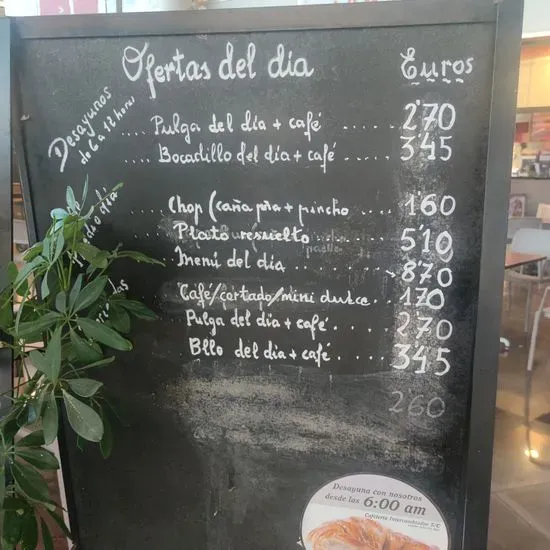 Ofertas del día Euros
Desayunos
de 6 a 12 horas
Pulga del día + café ..... 2'70
Bocadillo del día + café ... 3'45
Chop (caña pña + pincho .... 1'60
Plato resuelto ..... 5'10
Menú del día ..... 8'70
Café/cortado/mini dulce .... 1'70
Pulga del día + café ..... 2'70
Bllo del día + café ..... 3'45
2 60
Desayuna con nosotros
desde las 6:00 am
Cafetería Intercambiador S/C